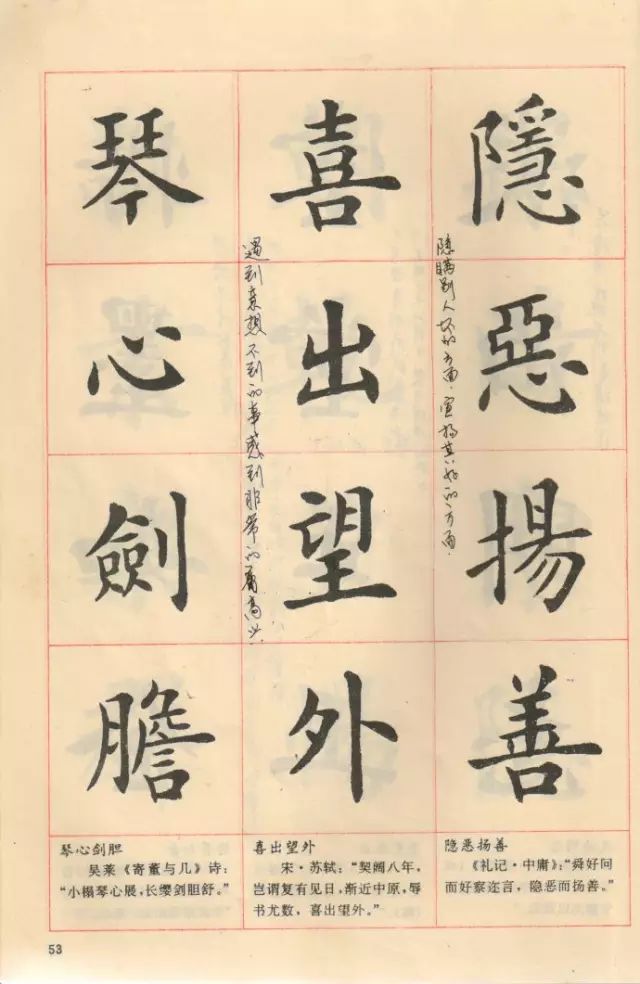 隱惡揚善
隐瞒别人坏的方面，宣扬其好的方面.
喜出望外
遇到意想不到的事感到非常的高兴
琴心劍膽
隐恶扬善
《礼记·中庸》：“舜好问
而好察迩言，隐恶而扬善。”
喜出望外
宋·苏轼：“契阔八年，
岂谓复有见日，渐近中原，辱
书尤数，喜出望外。”
琴心剑胆
吴莱《寄董与几》诗：
“小榻琴心展，长缨剑胆舒。”
53